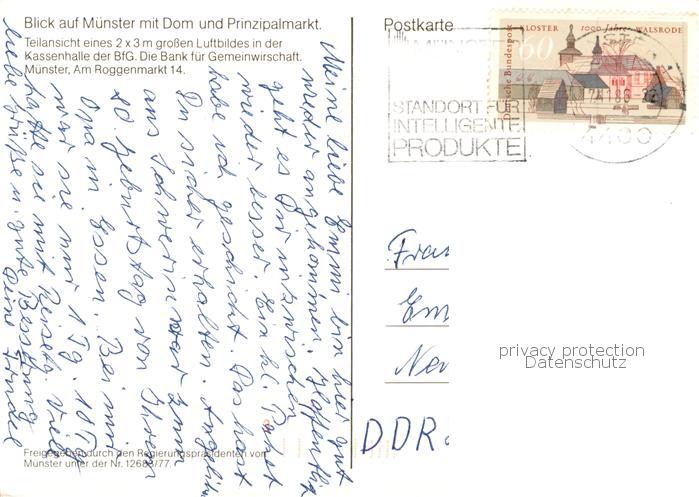 Blick auf Münster mit Dom und Prinzipalmarkt.
Teilansicht eines 2 x 3 m großen Luftbildes in der
Kassenhalle der BfG. Die Bank für Gemeinwirtschaft.
Münster, Am Roggenmarkt 14.
Meine liebe Emmi bin hier gut
wieder angekommen, hoffentlich
geht es Dir inzwischen
wieder besser. Ein kl. Paket
habe ich geschickt. Das hast
Du sicher erhalten.
aus Schwerin war zum
80. Geburtstag von Ihrem
Opa in Essen. Bei mir
war sie nur 1 Tg.
hatte sie mit
liebe Grüße u. gute Besserung
Deine
Freigegeben durch den Regierungspräsidenten von
Münster unter der Nr. 12683/77.
Postkarte
STANDORT FÜR
INTELLIGENTE
PRODUKTE
Deutsche Bundespost
KLOSTER 1000 Jahre WALSRODE
60
4400
Frau
Em
Ne
DDR
privacy protection
Datenschutz